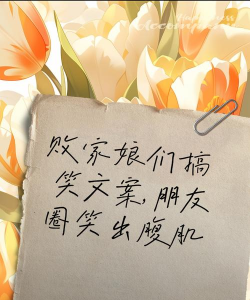 败家娘们搞
笑文案,朋友
圈笑出腹肌